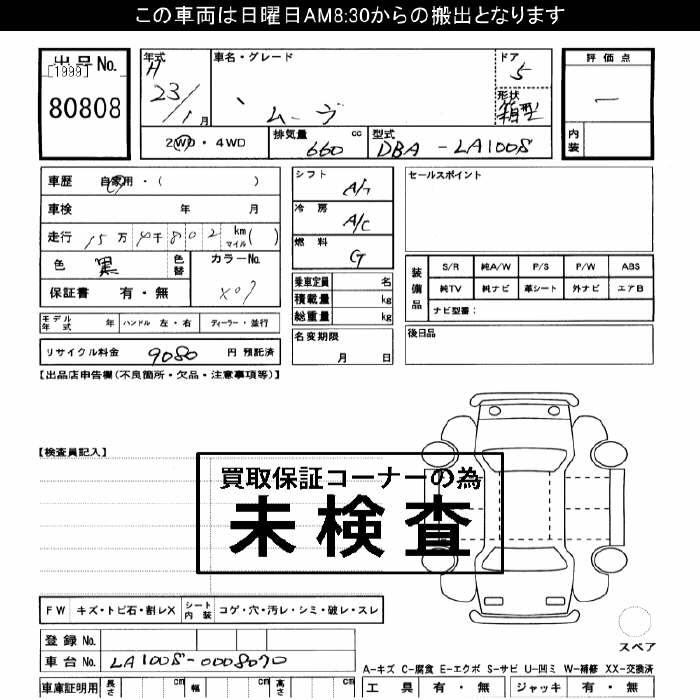 この車両は日曜日AM8:30からの搬出となります
出品No.
[1999]
80808
年式
H
23/1月
車名・グレード
ムーヴ
ドア
5
形状
箱型
評価点
内装
2WD・4WD
排気量 660 cc
型式 DBA-LA100S
車歴 自家用・( )
車検 年 月
走行 15万 4千 802 km マイル( )
色 黒
色替
カラーNo.
X07
保証書 有・無
モデル年式 年 ハンドル 左・右 ディーラー・並行
リサイクル料金 9080 円 預託済
シフト
冷房 A/C
燃料 G
乗車定員 名
積載量 kg
総重量 kg
名変期限
月 日
セールスポイント
装備品
S/R 純A/W P/S P/W ABS
純TV 純ナビ 革シート 外ナビ エアB
ナビ型番：
後日品
【出品店申告欄(不良箇所・欠品・注意事項等)】
【検査員記入】
買取保証コーナーの為
未検査
FW キズ・トビ石・割レX シート内装 コゲ・穴・汚レ・シミ・破レ・スレ
スペア
登録No.
車台No. LA100S-0008070
A-キズ C-腐食 E-エクボ S-サビ U-凹ミ W-補修 XX-交換済
車庫証明用 長さ cm 幅 cm 高さ cm
工具 有・無 ジャッキ 有・無